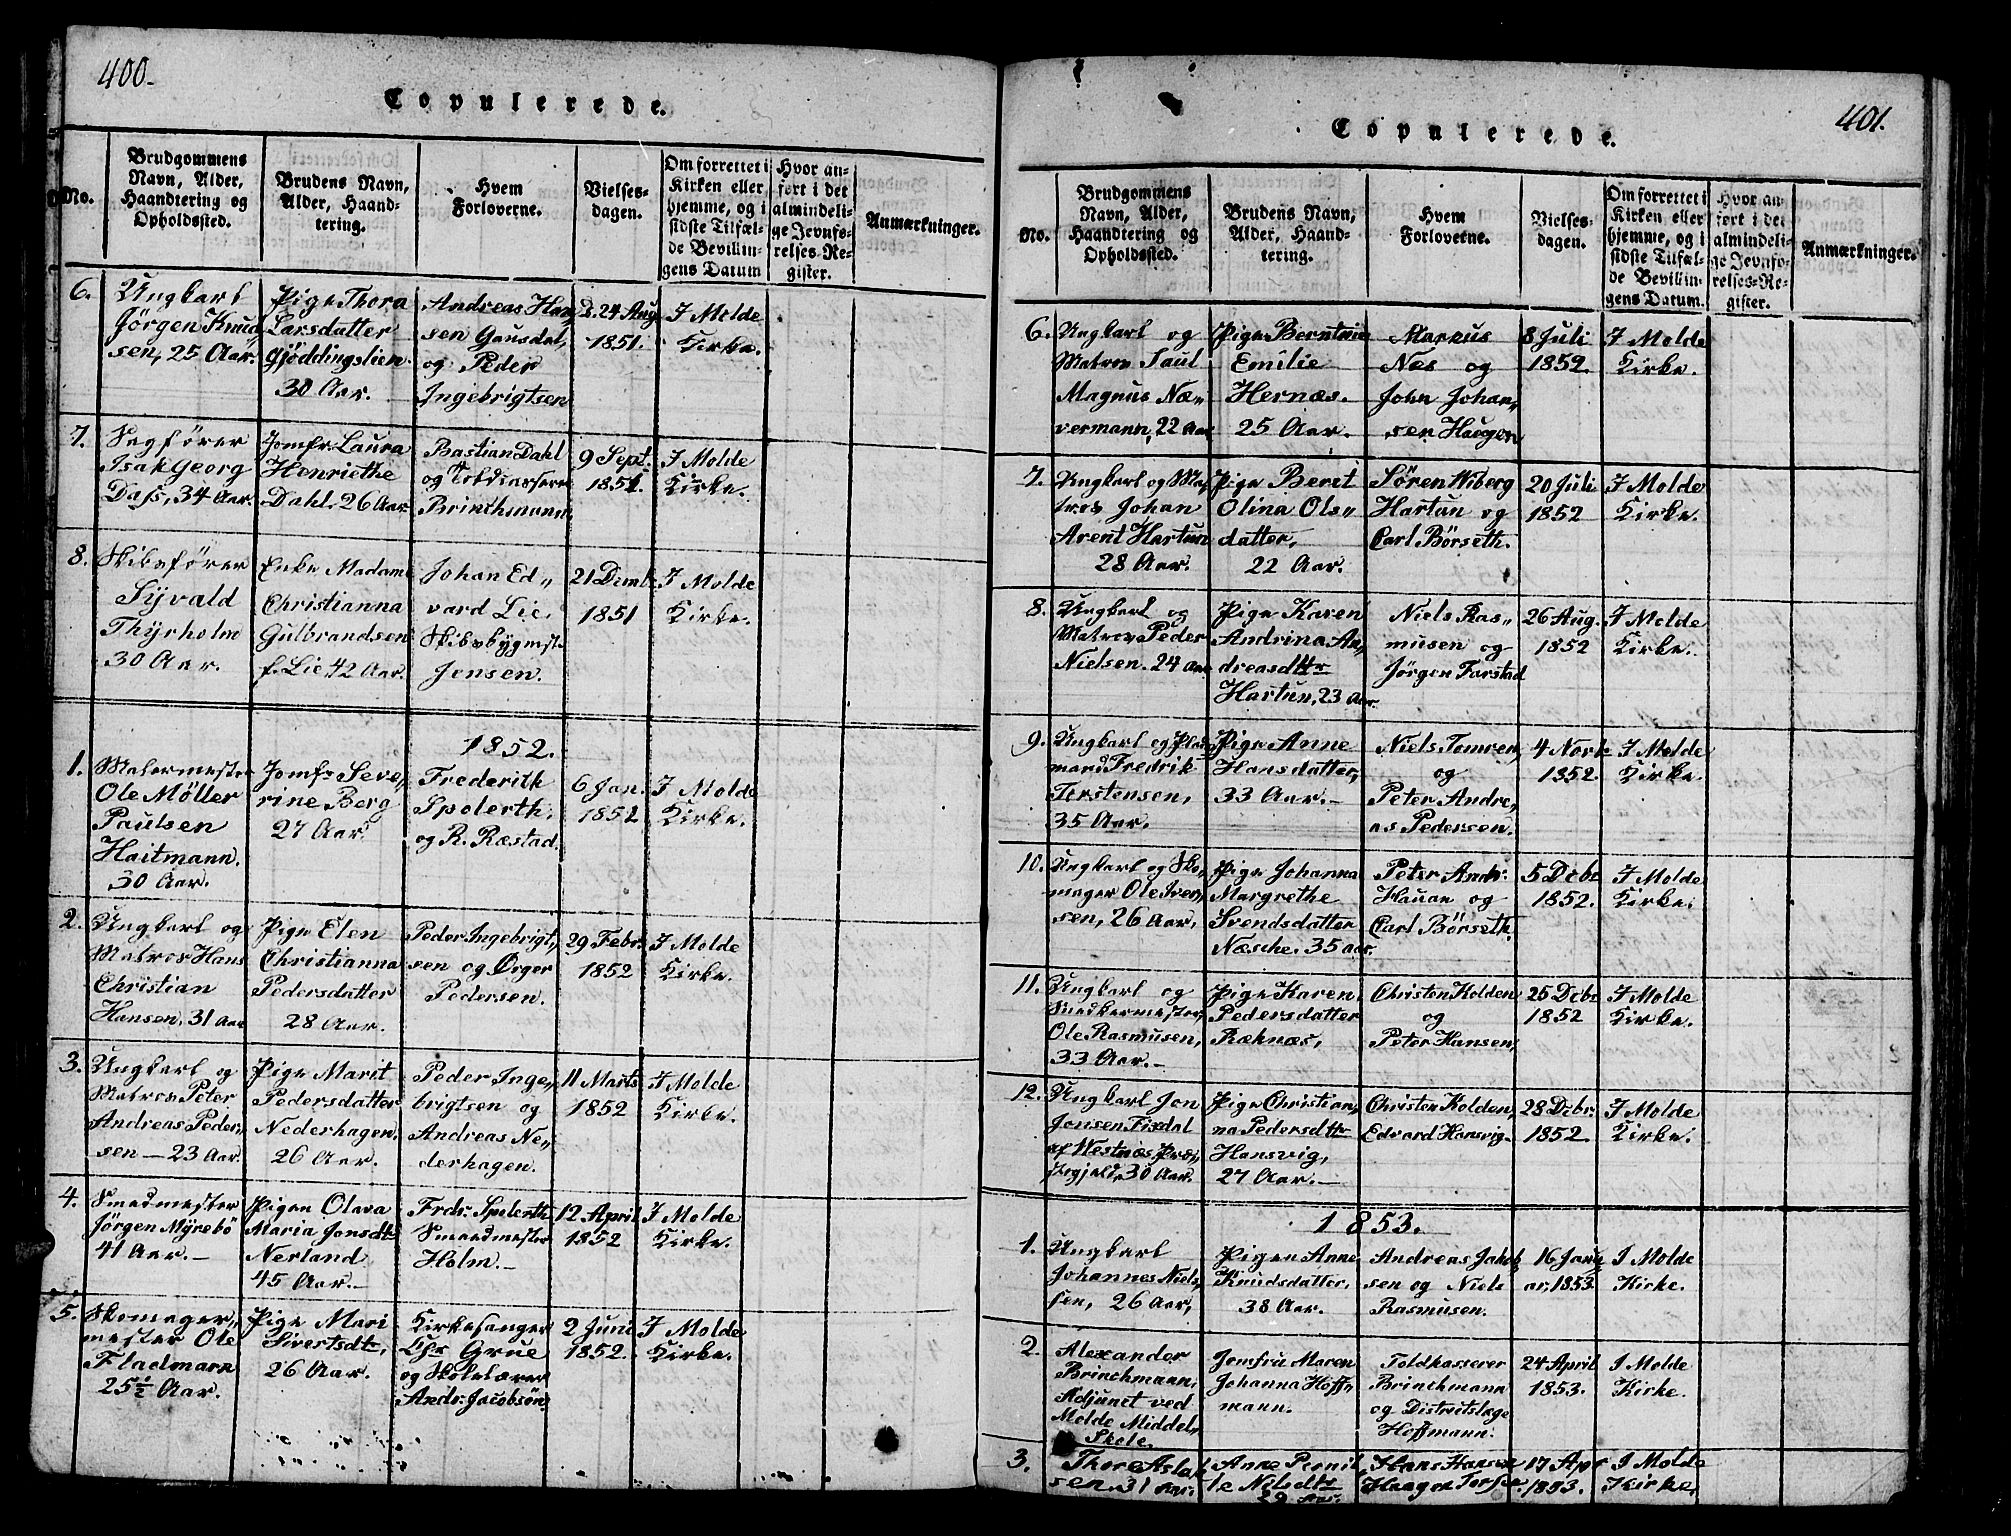 400.
Copulerede.
No.
Brudgommens
Navn, Alder,
Haandtering og
Opholdssted.
Brudens Navn,
Alder, Haand-
tering.
Hvem
Forloverne.
Vielses-
dagen.
Om forrettet i
Kirken eller
hjemme, og i
sidste Tilfæl-
de Bevillin-
gens Datum
Hvor an-
ført i det
almindeli-
ge Jevnfø-
relses-Re-
gister.
Anmærkninger.
6.
Ungkarl
Jörgen Knud,
sen, 25 Aar.
Pige Thora
Larsdatter
Gjöddingslien
30 Aar.
Andreas Han,
sen Gausdal,
og Peder
Ingebrigtsen
D. 24 Aug
1851.
I Molde
Kirke.
7.
Sagfører
Isak Georg
Dass, 34 Aar.
Jomfr. Laura
Henriethe
Dahl. 26 Aar
Bastian Dahl
og Toldkasserer
Brinchmann
9 Sept.
1851.
I Molde
Kirke.
8.
Skibsfører
Syvald
Thyrholm
30 Aar.
Enke Madame
Christianna
Gulbrandsen
f. Lie, 42 Aar.
Johan Ed„
vard Lie,
Skibsbygmest.
Jensen.
21 Decmb.
1851
I Molde
Kirke.
1852.
1.
Malermester
Ole Möller
Paulsen
Haitmann.
30 Aar.
Jomfr Seve,
rine Berg
27 Aar
Frederik
Spolerth.
og R. Ræstad.
6 Jan.
1852
I Molde
Kirke.
2.
Ungkarl og
Matros Hans
Christian
Hansen, 31 Aar
Pige Elen
Christianna
Pedersdatter
28 Aar.
Peder Ingebrigt,
sen og Ørger
Pedersen.
29 Febr.
1852
I Molde
Kirke.
3.
Ungkarl og
Matros Peter
Andreas Peder,
sen — 23 Aar.
Pige Marit
Pedersdatter
Nederhagen.
26 Aar.
Peder Inge„
brigtsen og
Andreas Ne„
derhagen.
11 Marts
1852
I Molde
Kirke.
4.
Smedmester
Jörgen Myrebö
41 Aar. —
Pigen Olava
Maria Jonsdtr
Nerland
45 Aar.—
Frdr. Spolerth
Smedmester
Holm.—
12 April
1852
I Molde
Kirke.
5.
Skomager„
mester Ole
Fladmarn
25½ Aar.
Pige Mari
Sivertsdtr,
26 Aar.
Kirkesanger
Chr Grue
og Skolelærer
Andr. Jacobsön.
2 Juni
1852.
I Molde
Kirke.
401.
Copulerede.
No.
Brudgommens
Navn, Alder,
Haandtering og
Opholdssted.
Brudens Navn,
Alder, Haand-
tering.
Hvem
Forloverne.
Vielses-
dagen.
Om forrettet i
Kirken eller
hjemme, og i
sidste Tilfæl-
de Bevillin-
gens Datum.
Hvor an-
ført i det
almindeli-
ge Jevnfø-
relses-Re-
gister.
Anmærkninger.
6.
Ungkarl og
Matros Paul
Magnus Næ„
vermann, 22 Aar
Pige Berntine
Emilie
Hernæs.
25 Aar.
Markus
Næs og
John Johan„
sen Haugen
8 Juli
1852.
I Molde
Kirke.
7.
Ungkarl og Ma,
tros Johan
Arent Hartun
28 Aar.
Pige Berit
Olina Ols„
datter,
22 Aar.
Sören Wiberg
Hartun og
Carl Börseth.
20 Juli
1852
I Molde
Kirke.
8.
Ungkarl og
Matros Peder
Nielsen. 24 Aar
Pige Karen
Andrina An,
dreasdttr
Hartun, 23 Aar.
Niels Ras„
musen og
Jörgen Farstad
26 Aug.
1852
I Molde
Kirke.
9.
Ungkarl og
mand Fredrik
Torstensen,
35 Aar.
Pige Anne
Hansdatter,
33 Aar.—
Niels Tomren,
og
Peter Andre,
as Pedersen.
4
1852.
I Molde
Kirke.
10.
Ungkarl og Sko,
mager Ole Iver,
sen, 26 Aar,
Pige Johanna
Margrethe
Svendsdatter
Næsche. 35 aar.
Peter Andr:
Hauan og
Carl Börseth.
5 Dcbr
1852.
I Molde
Kirke.
11.
Ungkarl og
Snedkermester,
Ole Rasmusen,
33 Aar.—
Pige Karen
Pedersdatter
Ræknæs,
Christen Kolden
og
Peter Hansen,
25 Dcbr
1852
I Molde
Kirke.
12.
Ungkarl Jon
Jonsen Fixdal
af Westnæs Præ,
stegjeld, 30 Aar.
Pige Christian,
na Pedersdttr
Hansvig,
27 Aar.—
Christen Kolden,
Edvard Hansvig.
28 Dcbr.
1852.
I Molde
Kirke.
1853.
1.
Ungkarl
Johannes Niels,
sen, 26 Aar,
Pigen Anne
Knudsdatter,
38 Aar.
Andreas Jakob
sen og Niels
Rasmusen.
16 Janu
ar, 1853.
I Molde
Kirke.
2
Alexander
Brinchmann,
Adjunct ved
Molde Middel,
Skole.
Jomfru Maren
Johanna Hoff,
mann.
Toldkasserer
Brinchmann
og Distriktslæge
Hoffmann.
24 April
1853.
I Molde
Kirke.
3.
Thore Aslak
sen, 31 Aar.
Anne Pernil,
le Nilsdtr
29 Aar.
Hans Hansen
Haagen
17 Apr
1853.
I Molde
Kirke,